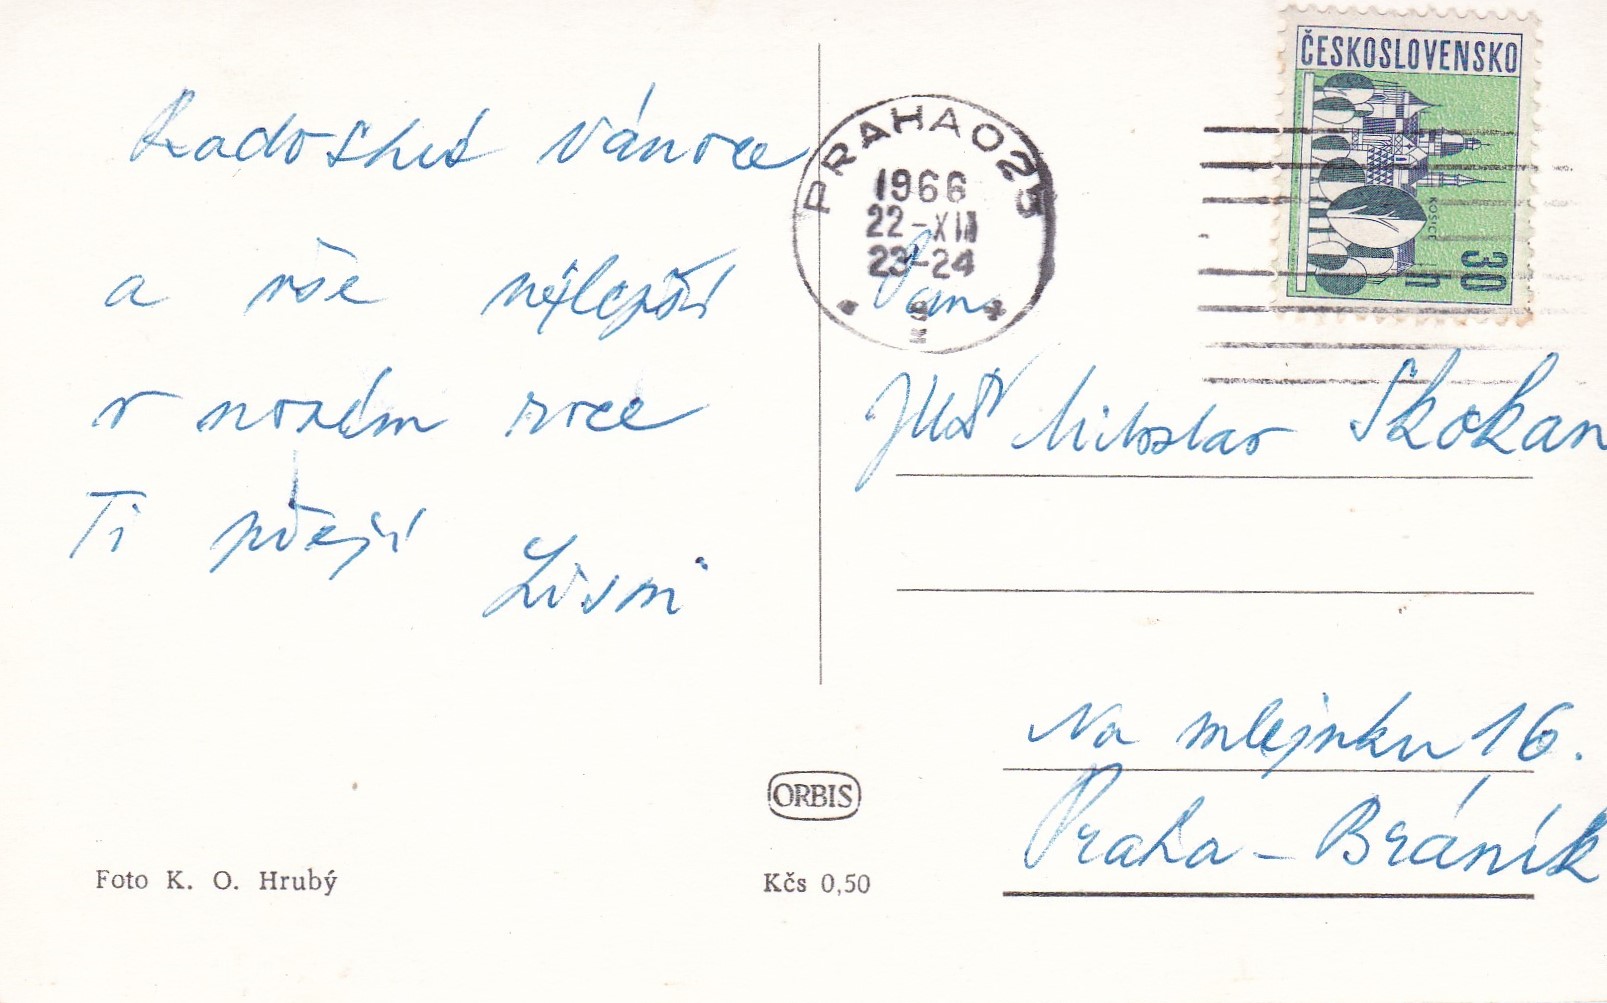 Radostné Vánoce
a vše nejlepší
v novém roce
Ti přejí
Pan
JUDr Miloslav Skokan
Na mlejnku 16.
Praha - Bráník
PRAHA 025
1966
22-XII
23-24
ČESKOSLOVENSKO
KOŠICE
30 h
ORBIS
Foto K. O. Hrubý
Kčs 0,50